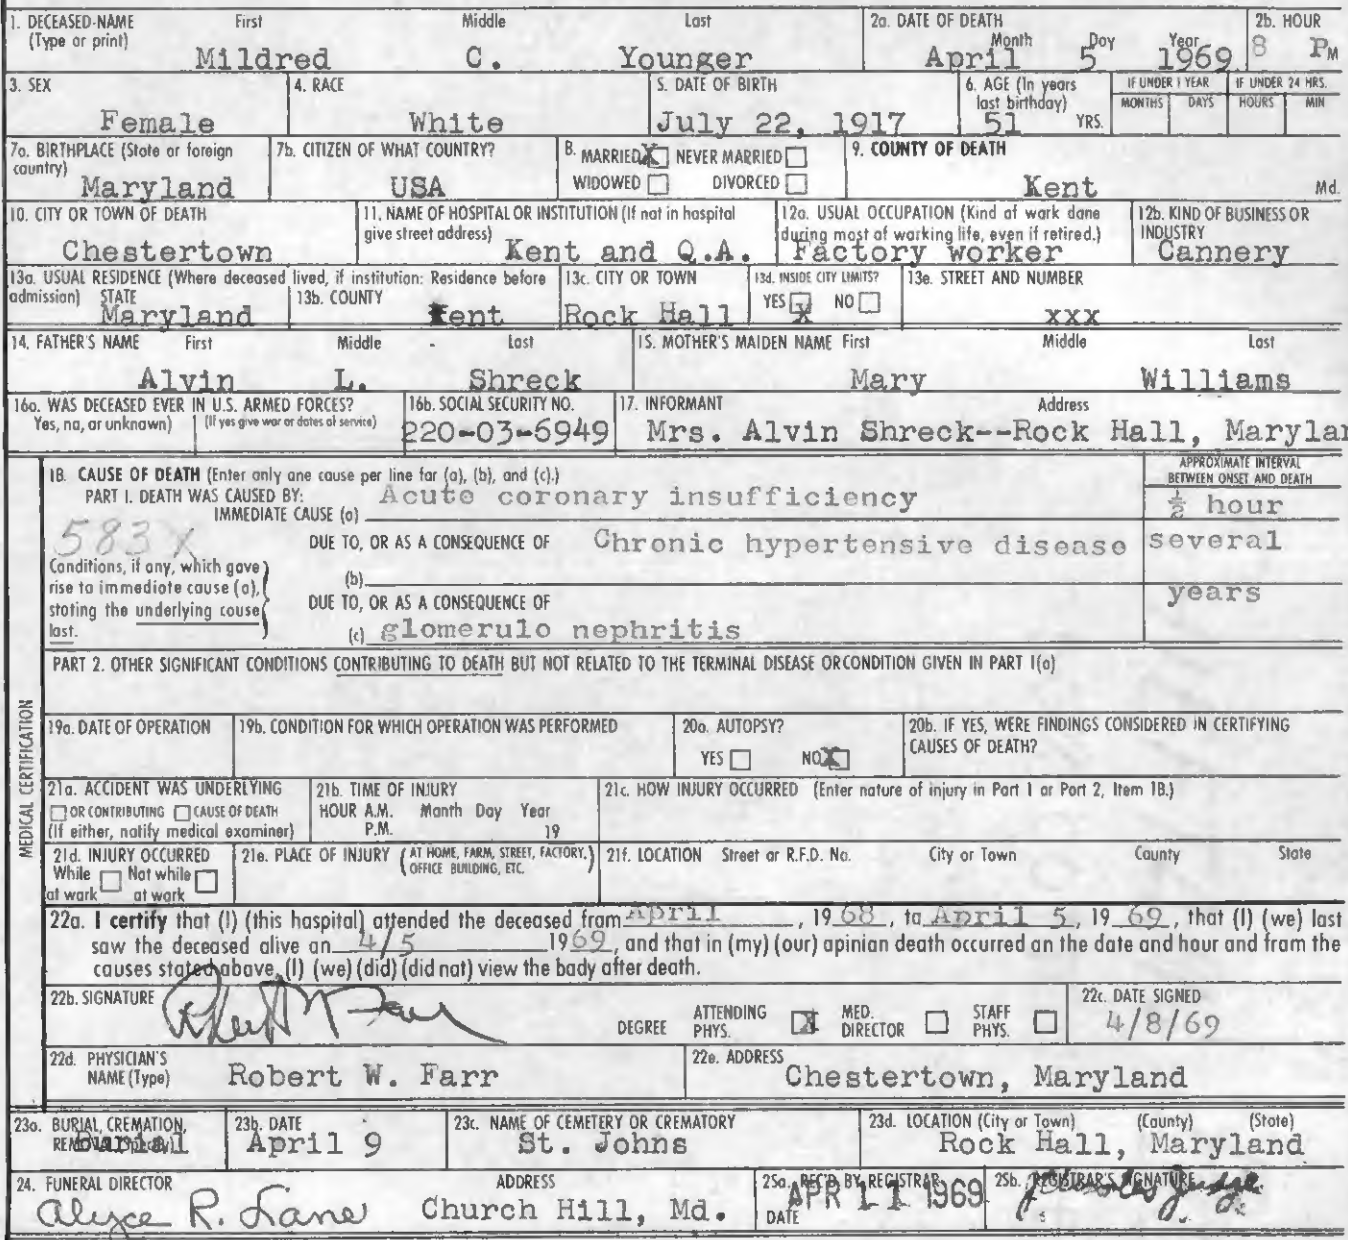 1. DECEASED-NAME (Type or print) First Middle Last
Mildred C. Younger
2a. DATE OF DEATH Month Day Year
April 5 1969
2b. HOUR
8 PM
3. SEX
Female
4. RACE
White
5. DATE OF BIRTH
July 22, 1917
6. AGE (In years last birthday)
51 YRS.
IF UNDER 1 YEAR MONTHS DAYS
IF UNDER 24 HRS. HOURS MIN
7a. BIRTHPLACE (State or foreign country)
Maryland
7b. CITIZEN OF WHAT COUNTRY?
USA
8. MARRIED X NEVER MARRIED
WIDOWED DIVORCED
9. COUNTY OF DEATH
Kent Md.
10. CITY OR TOWN OF DEATH
Chestertown
11. NAME OF HOSPITAL OR INSTITUTION (If not in hospital give street address)
Kent and Q.A.
12a. USUAL OCCUPATION (Kind of work done during most of working life, even if retired.)
Factory worker
12b. KIND OF BUSINESS OR INDUSTRY
Cannery
13a. USUAL RESIDENCE (Where deceased lived, if institution: Residence before admission) STATE
Maryland
13b. COUNTY
Kent
13c. CITY OR TOWN
Rock Hall
13d. INSIDE CITY LIMITS?
YES X NO
13e. STREET AND NUMBER
xxx
14. FATHER'S NAME First Middle Last
Alvin L. Shreck
15. MOTHER'S MAIDEN NAME First Middle Last
Mary Williams
16a. WAS DECEASED EVER IN U.S. ARMED FORCES?
Yes, no, or unknown) (If yes give war or dates of service)
16b. SOCIAL SECURITY NO.
220-03-6949
17. INFORMANT Address
Mrs. Alvin Shreck--Rock Hall, Marylan
MEDICAL CERTIFICATION
18. CAUSE OF DEATH (Enter only one cause per line for (a), (b), and (c).)
PART I. DEATH WAS CAUSED BY:
IMMEDIATE CAUSE (a) Acute coronary insufficiency
APPROXIMATE INTERVAL BETWEEN ONSET AND DEATH
½ hour
583X
Conditions, if any, which gave rise to immediate cause (a), stating the underlying cause last.
DUE TO, OR AS A CONSEQUENCE OF Chronic hypertensive disease several
(b) years
DUE TO, OR AS A CONSEQUENCE OF
(c) glomerulo nephritis
PART 2. OTHER SIGNIFICANT CONDITIONS CONTRIBUTING TO DEATH BUT NOT RELATED TO THE TERMINAL DISEASE OR CONDITION GIVEN IN PART I(a)
19a. DATE OF OPERATION
19b. CONDITION FOR WHICH OPERATION WAS PERFORMED
20a. AUTOPSY?
YES NO X
20b. IF YES, WERE FINDINGS CONSIDERED IN CERTIFYING CAUSES OF DEATH?
21a. ACCIDENT WAS UNDERLYING
OR CONTRIBUTING CAUSE OF DEATH
(If either, notify medical examiner)
21b. TIME OF INJURY
HOUR A.M. Month Day Year
P.M. 19
21c. HOW INJURY OCCURRED (Enter nature of injury in Part 1 or Part 2, Item 18.)
21d. INJURY OCCURRED
While at work Not while at work
21e. PLACE OF INJURY (AT HOME, FARM, STREET, FACTORY, OFFICE BUILDING, ETC.)
21f. LOCATION Street or R.F.D. No. City or Town County State
22a. I certify that (I) (this hospital) attended the deceased from April, 1968, to April 5, 1969, that (I) (we) last
saw the deceased alive on 4/5 1969, and that in (my) (our) opinion death occurred on the date and hour and from the
causes stated above, (I) (we) (did) (did not) view the body after death.
22b. SIGNATURE
Robert W Farr
DEGREE ATTENDING PHYS. X MED. DIRECTOR STAFF PHYS.
22c. DATE SIGNED
4/8/69
22d. PHYSICIAN'S NAME (Type)
Robert W. Farr
22e. ADDRESS
Chestertown, Maryland
23a. BURIAL, CREMATION, REMOVAL
Burial
23b. DATE
April 9
23c. NAME OF CEMETERY OR CREMATORY
St. Johns
23d. LOCATION (City or Town) (County) (State)
Rock Hall, Maryland
24. FUNERAL DIRECTOR ADDRESS
Alyce R. Lane Church Hill, Md.
25a. REC'D BY REGISTRAR
DATE APR 11 1969
25b. REGISTRAR'S SIGNATURE